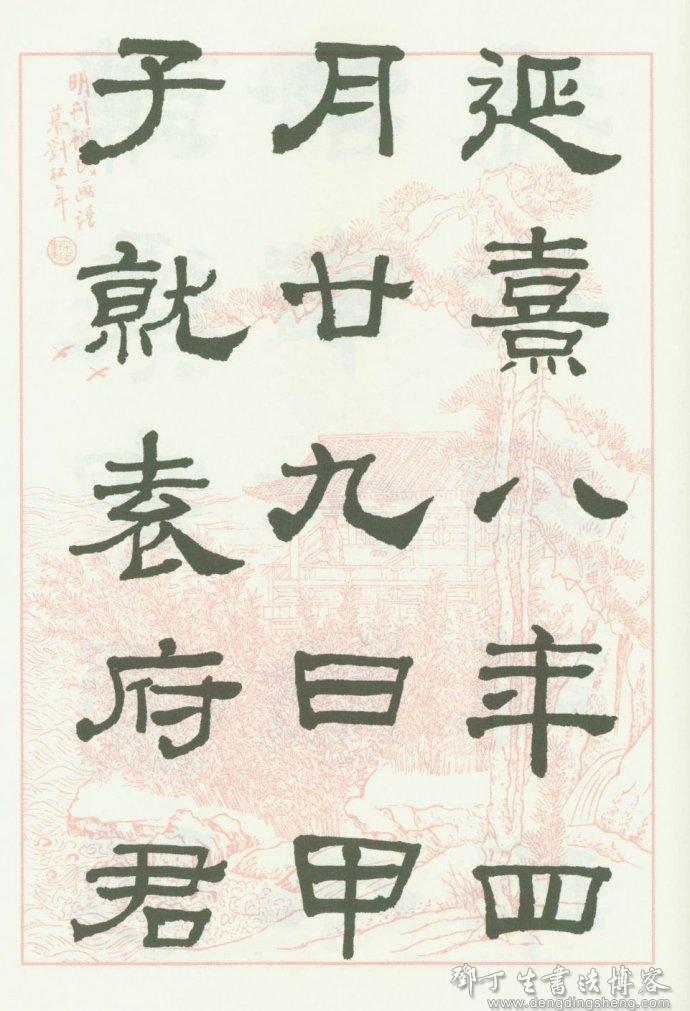 延熹八年四
月廿九日甲
子就袁府君
明刊诗画谱
摹刘松年
邓丁生书法博客
www.dengdingsheng.com